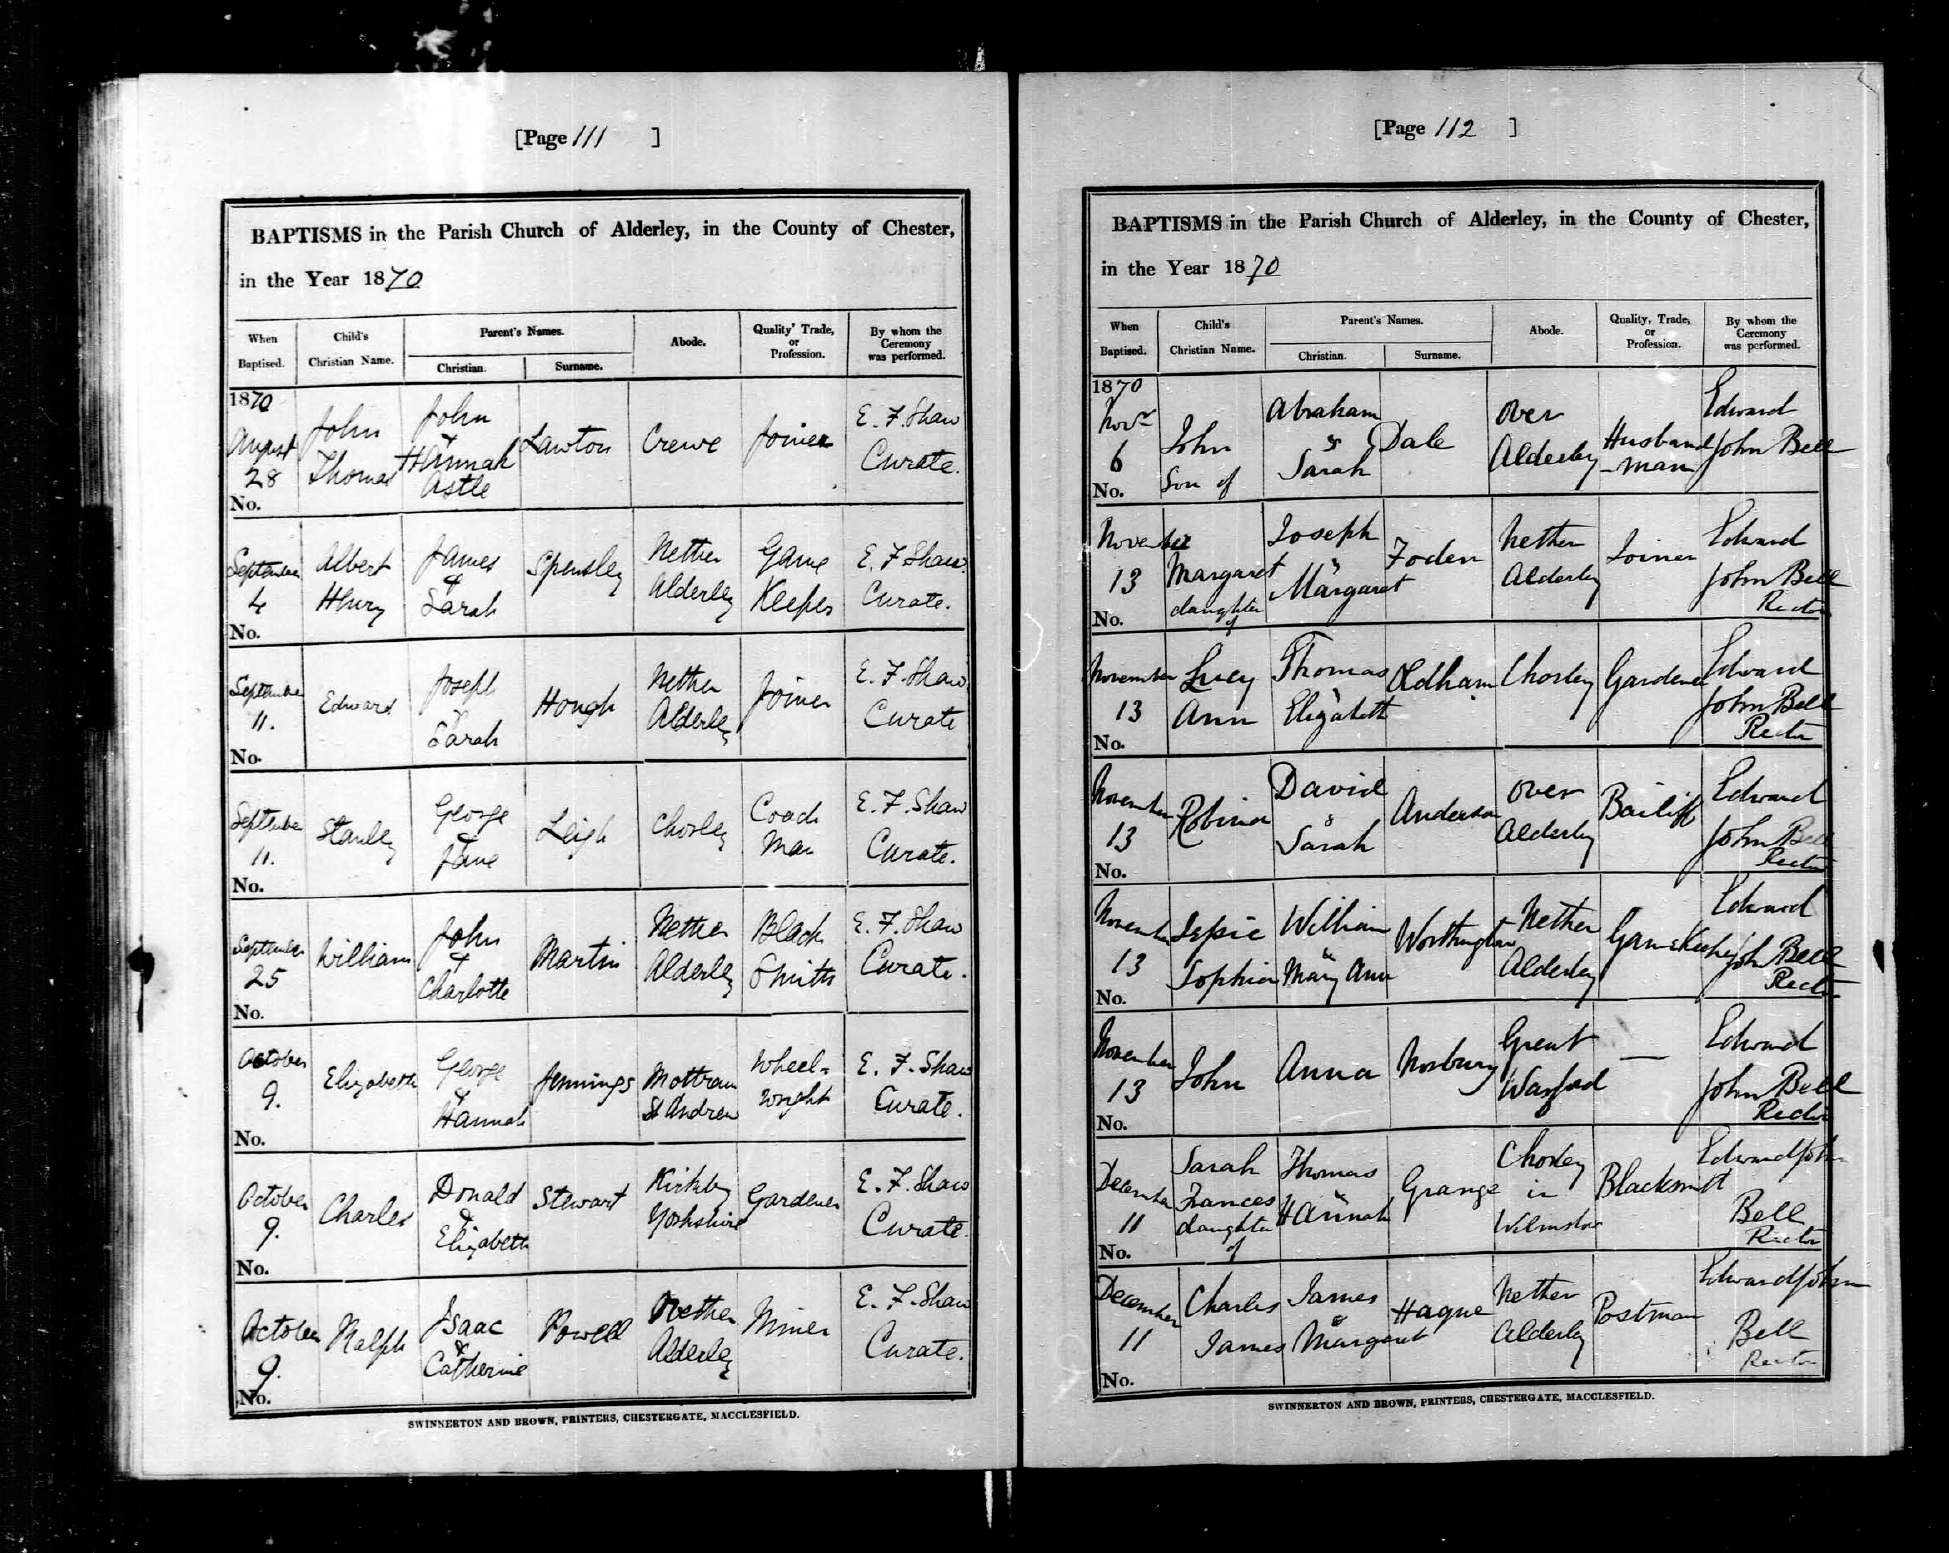 [Page 111 ]
BAPTISMS in the Parish Church of Alderley, in the County of Chester,
in the Year 1870
When Baptised. Child's Christian Name. Parent's Names. Christian. Surname. Abode. Quality' Trade, or Profession. By whom the Ceremony was performed.
1870
August 28 John Thomas John & Hannah Astle Lawton Crewe Joiner E. F. Shaw Curate.
No.
September 4 Albert Henry James & Sarah Spensley Nether Alderley Game Keeper E. F. Shaw Curate.
No.
September 11. Edward Joseph & Sarah Hough Nether Alderley Joiner E. F. Shaw Curate
No.
September 11. Stanley George & Jane Leigh Chorley Coach Man E. F. Shaw Curate.
No.
September 25 William John & Charlotte Martin Nether Alderley Black Smith E. F. Shaw Curate.
No.
October 9. Elizabeth George & Hannah Jennings Mottram St Andrew Wheel-wright E. F. Shaw Curate.
No.
October 9. Charles Donald & Elizabeth Stewart Kirkby Yorkshire Gardener E. F. Shaw Curate.
No.
October 9. Ralph Isaac & Catherine Powell Nether Alderley Miner E. F. Shaw Curate.
No.
SWINNERTON AND BROWN, PRINTERS, CHESTERGATE, MACCLESFIELD.
[Page 112 ]
BAPTISMS in the Parish Church of Alderley, in the County of Chester,
in the Year 1870
When Baptised. Child's Christian Name. Parent's Names. Christian. Surname. Abode. Quality, Trade, or Profession. By whom the Ceremony was performed.
1870
Novr 6 John Son of Abraham & Sarah Dale Over Alderley Husband-man Edward John Bell
No.
November 13 Margaret daughter of Joseph & Margaret Foden Nether Alderley Joiner Edward John Bell Rector
No.
November 13 Lucy Ann Thomas & Elizabeth Oldham Chorley Gardener Edward John Bell Rector
No.
November 13 Robina David & Sarah Anderson Over Alderley Bailiff Edward John Bell Rector
No.
November 13 Jessie Sophia William & Mary Ann Worthington Nether Alderley GameKeeper Edward John Bell Rector
No.
November 13 John Anna Norbury Great Warford — Edward John Bell Rector
No.
December 11 Sarah Frances daughter of Thomas & Hannah Grange Chorley in Wilmslow Blacksmith Edward John Bell Rector
No.
December 11 Charles James James & Margaret Hague Nether Alderley Postman Edward John Bell Rector
No.
SWINNERTON AND BROWN, PRINTERS, CHESTERGATE, MACCLESFIELD.